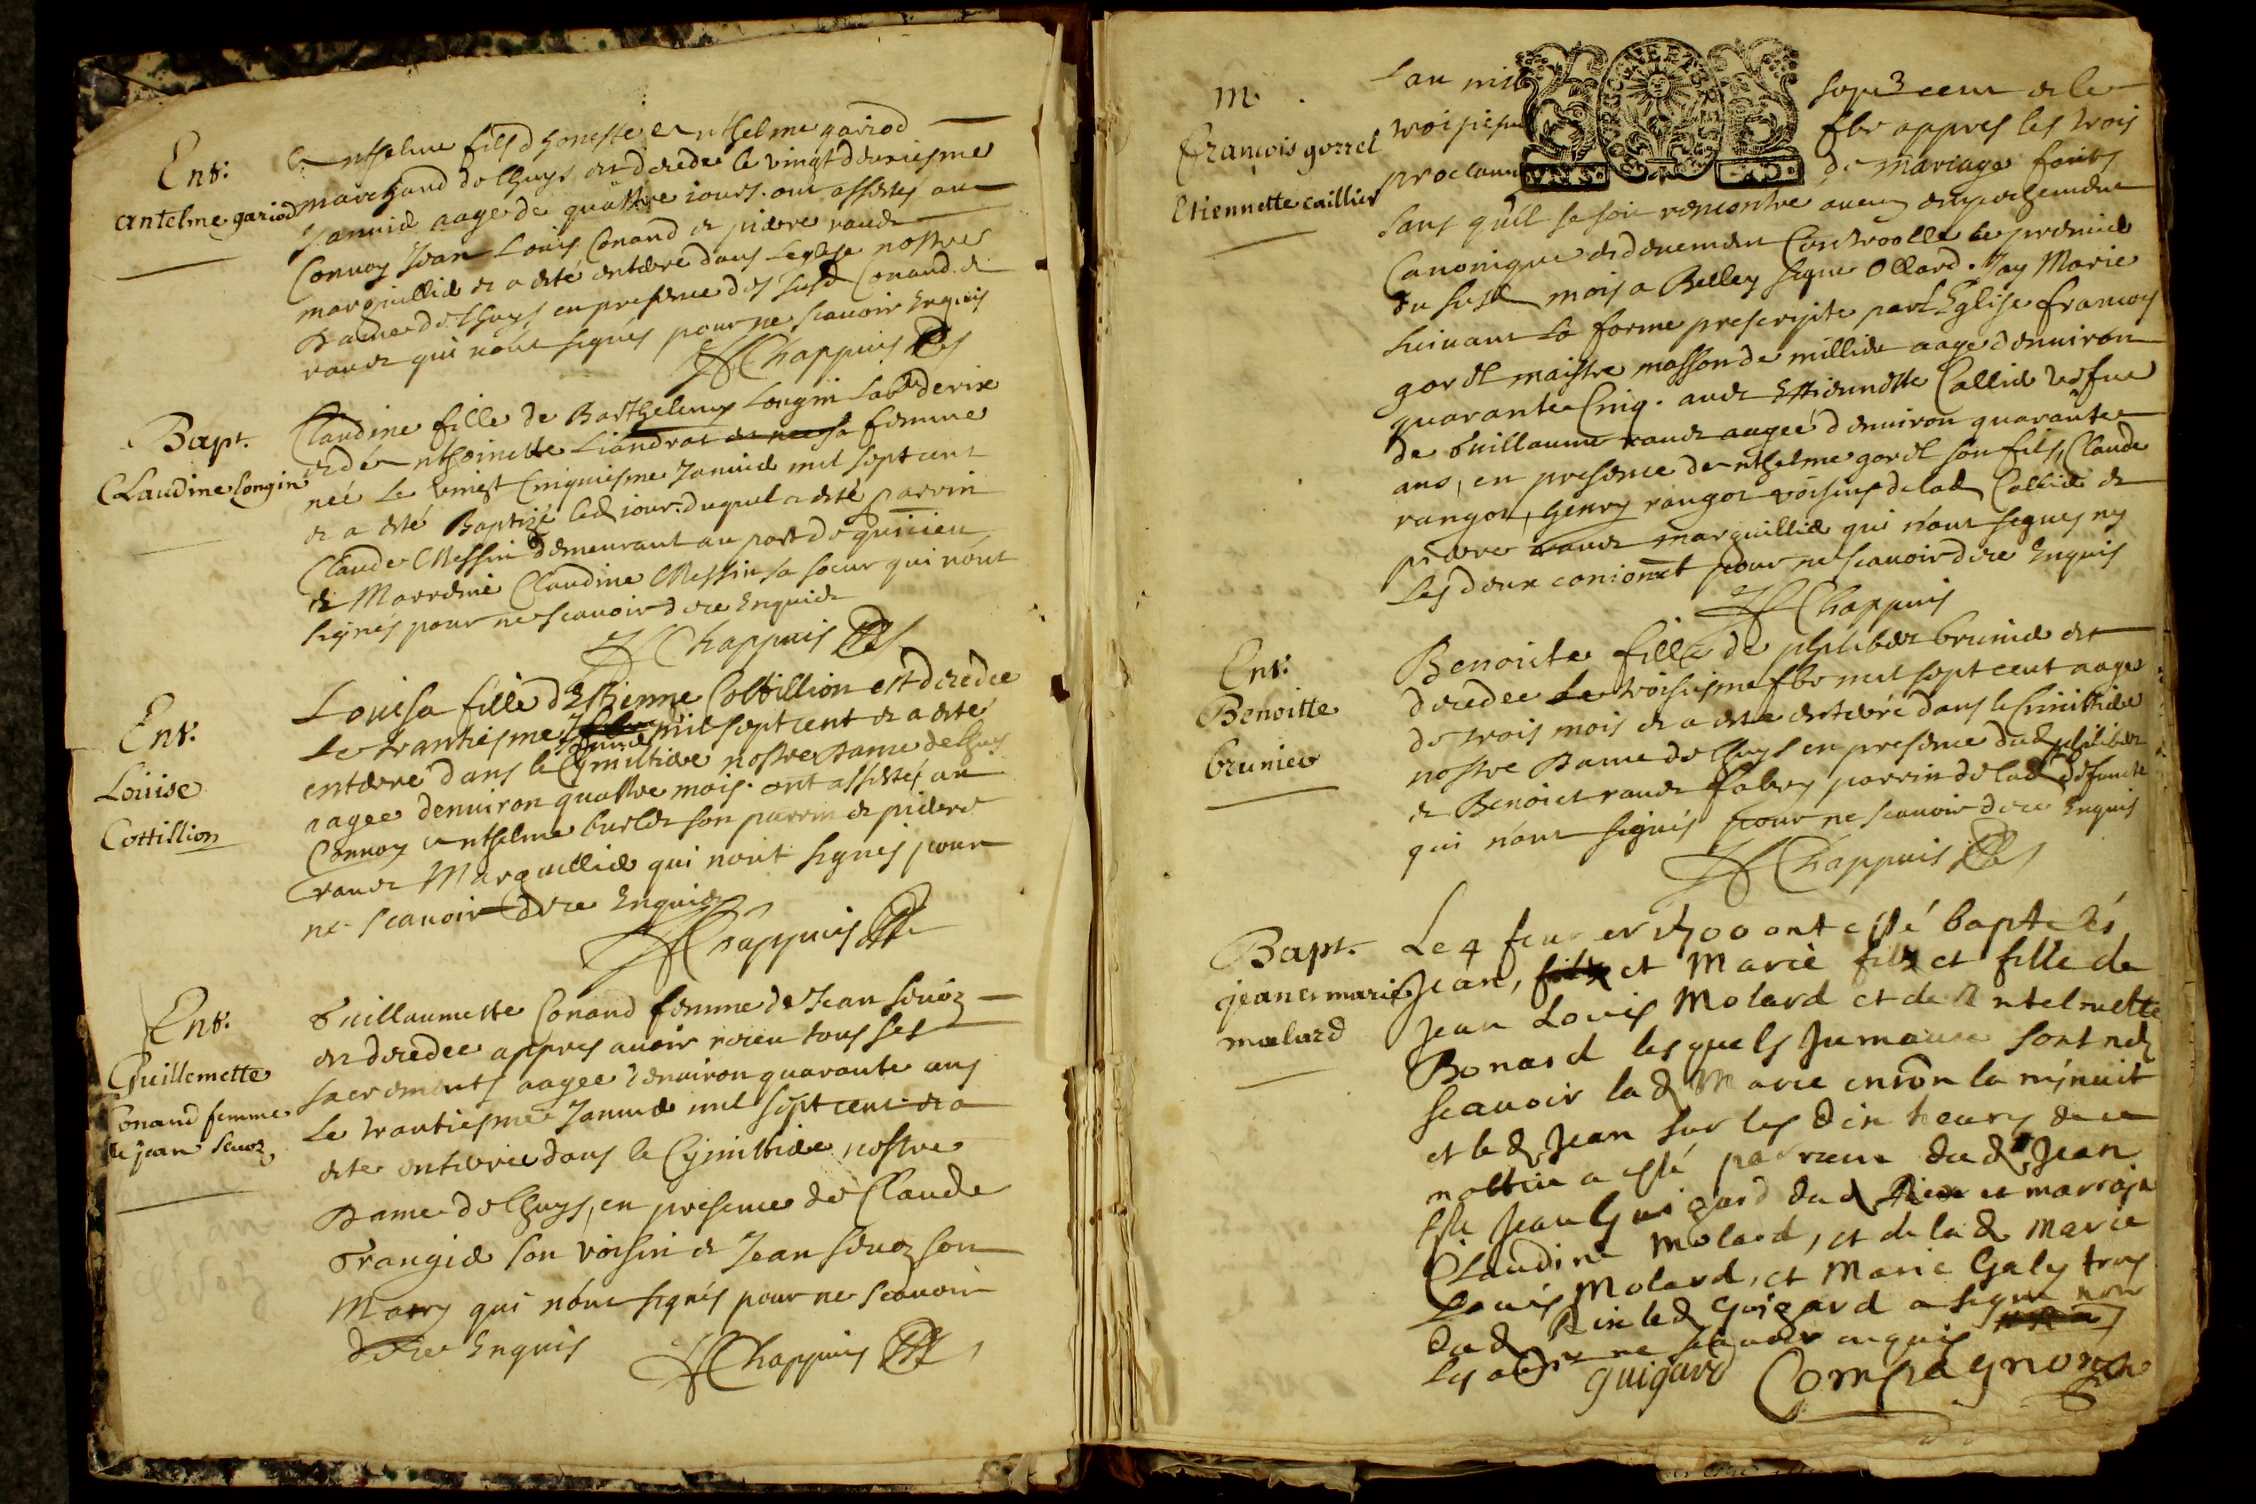 Ent.
antelme gariod
Anthelme fils d'honeste Anthelme gariod
marchand de Lhuys est decede le vingt deuxiesme
Janvié aage de quattre jours. ont assistes au
Convoy Jean Louis Conand et pierre raude
marguillié et a esté enterré dans Leglise nostre
Dame de Lhuys en presence des susd Conand et
raude qui n'ont signés pour ne scavoir Enquis
Chappuis
Bapt.
Claudine Longin
Claudine fille de Barthelemy Longin Lab de rix
et de Anthoinette Liandrat sa femme
neé Le vingt Cinquiesme Janvié mil sept cent
et a esté Baptizé led jour. duquel a esté parrin
Claude Messin demeurant au port de quirieu
et Marrenie Claudine Messin sa soeur qui n'ont
signés pour ne scavoir de ce Enquis
Chappuis
Ent.
Louise
Cottillion
Louisa fille d'Estienne Cottillion est decedee
Le trantiesme Janvié mil sept cent et a esté
enterre dans le Cymittiere nostre Dame de Lhuys
aagee denuiron quattre mois. ont assistes au
Convoy Anthelme burlet son parrin et pierre
raude Marguillié qui n'ont signés pour
ne scavoir de ce Enquis
Chappuis
Ent.
Guillemette
Conand femme
de jean Sevoz
Guillaumette Conand femme de Jean Sevoz
est decedee appres avoir receu tous ses
sacrements aagee denuiron quarante ans
Le trantiesme Janvié mil sept cent et a
esté enterree dans le Cymittiere nostre
Dame de Lhuys, en presence de Claude
Trangié son voisin et Jean Sevoz son
Marry qui n'ont signés pour ne scavoir
de ce Enquis
Chappuis
M.
François gorrel
Etiennette caillier
Lan mil sept cent et le
troisiesme fbr appres les trois
proclam de mariage faites
sans quil se soit rencontre aucun empechement
Canonique et deuement Controolle le premié
du susd mois a Belley signe Ollard. Jay Marie
suivant la forme prescripte par L'Eglise francoys
gorel maistre masson de millieu aage denuiron
quarante Cinq. avec Ettiennette Callié vefue
de Guillaume raude aageé denuiron quarante
ans, en presence de Anthelme gorel son fils, Claude
rangot, henry rangot voisins de lad Callié et
pierre raude marguillié qui n'ont signes ny
Les deux conioinct pour ne scavoir de ce Enquis
Chappuis
Ent.
Benoitte
brunier
Benoite fille de philibert brunié est
decedee Le troisiesme fbr mil sept cent aagee
de trois mois et a esté enterré dans le Cimittiere
nostre Dame de Lhuys en presence dud philibert
et Benoict raude fabry parrin de lad defuncte
qui n'ont signés pour ne scavoir de ce Enquis
Chappuis
Bapt.
jean et marie
molard
Le 4 feurier 1700 ont esté baptisés
Jean, et Marie fils et fille de
Jean Louis Molard et de Antelmette
Bonard lesquels Jumeaux sont nés
scavoir lad Marie environ la minuit
et led Jean sur les dix heures de ce
mattin a esté parrein dud Jean
Jean Guigard dud et marraine
Claudine Molard, et de lad Marie
Louis Molard, et Marie Galy trois
dud Rix led Guigard a signé non
Les autres ne scavoir enquis
guigard Compagnon